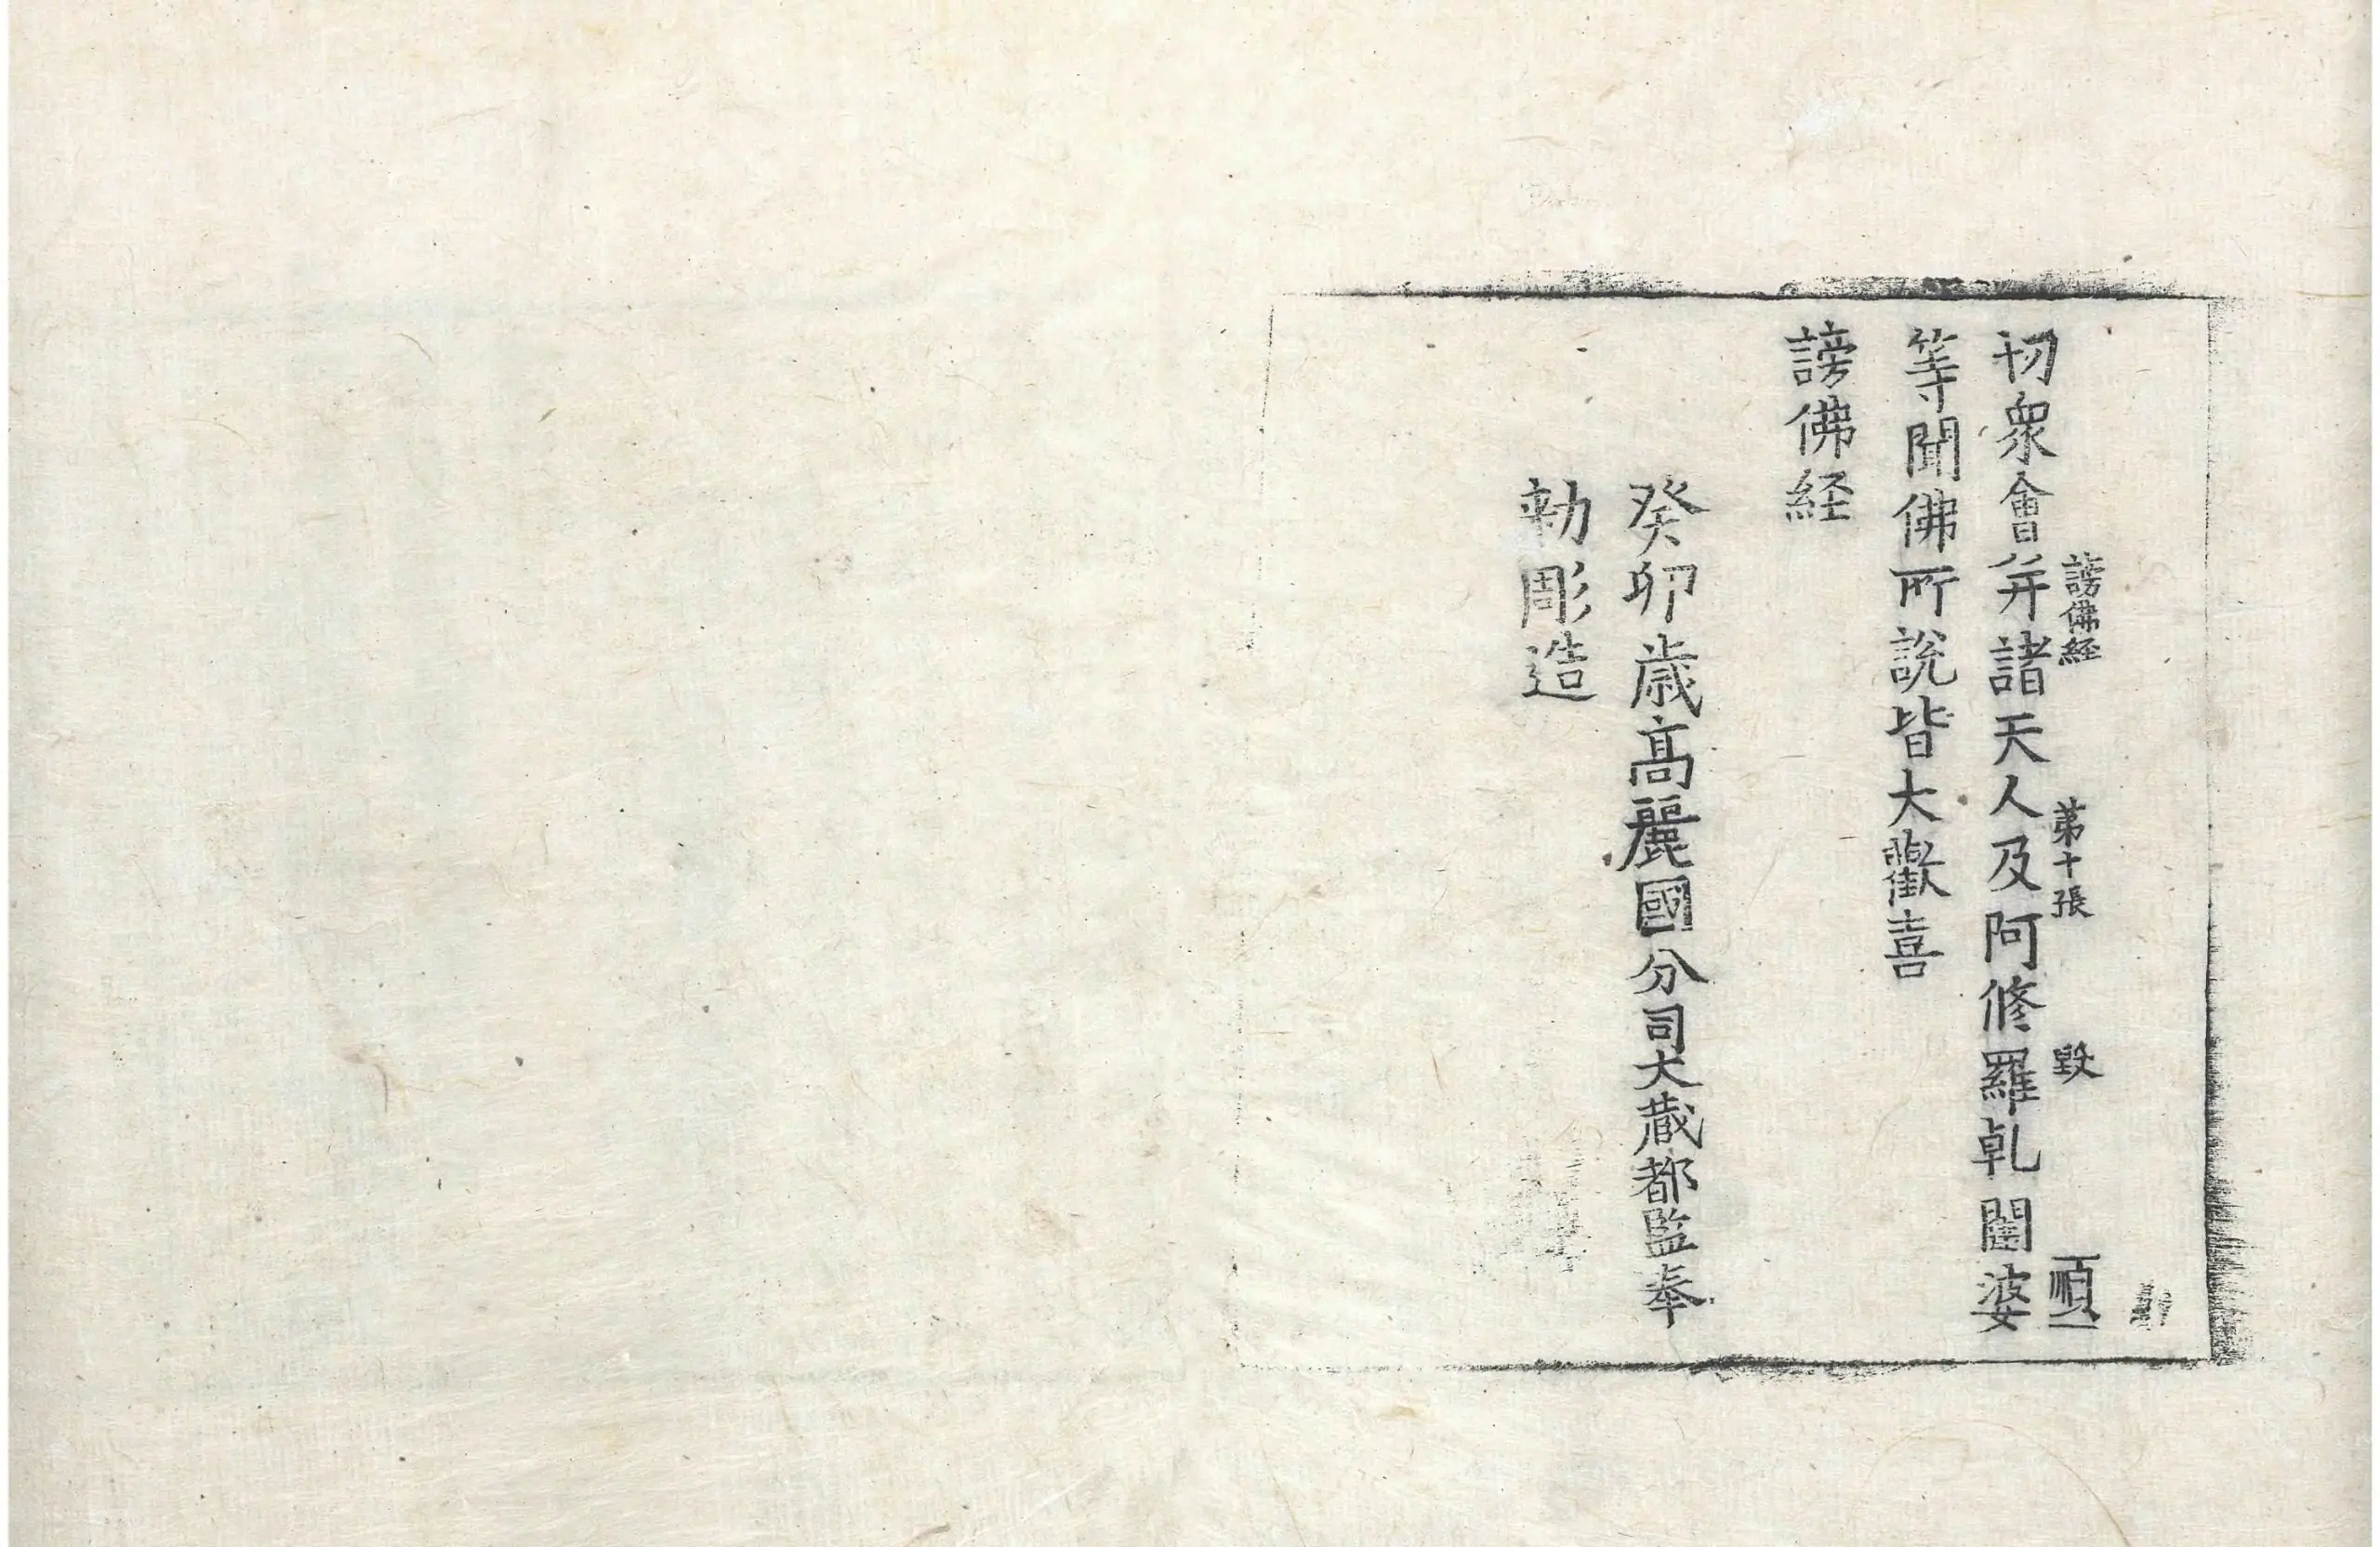 謗佛経 苐十張 毀
初衆會并諸天人及阿脩羅乹闥婆
等聞佛所說皆大歡喜
謗佛経
癸卯歳高麗國分司大蔵都監奉
勅彫造